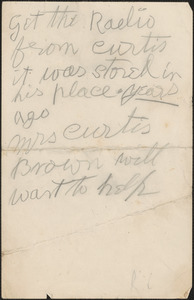 Got the Radio
from Curtis
it was stored in
his place years
ago
Mrs Curtis
Brown will
want to help